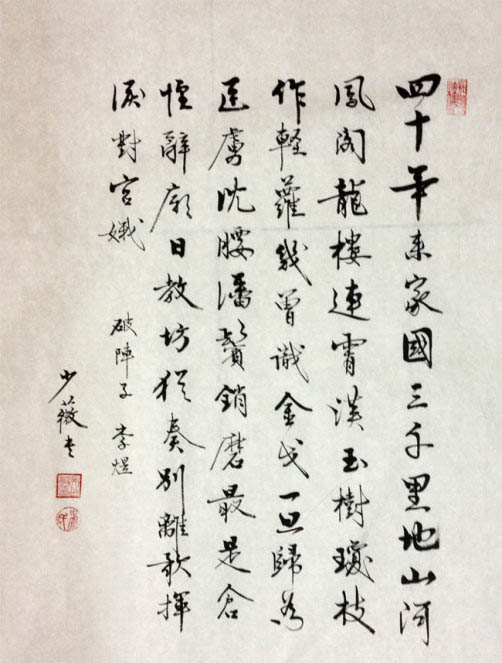 四十年來家國三千里地山河
鳳阁龍樓連霄漢玉樹瓊枝
作軽蘿幾曾識金戈一旦歸為
臣虜沈腰潘鬢銷磨最是倉
惶辭廟日教坊猶奏別離歌揮
淚對宮娥
破陣子 李煜
少薇书